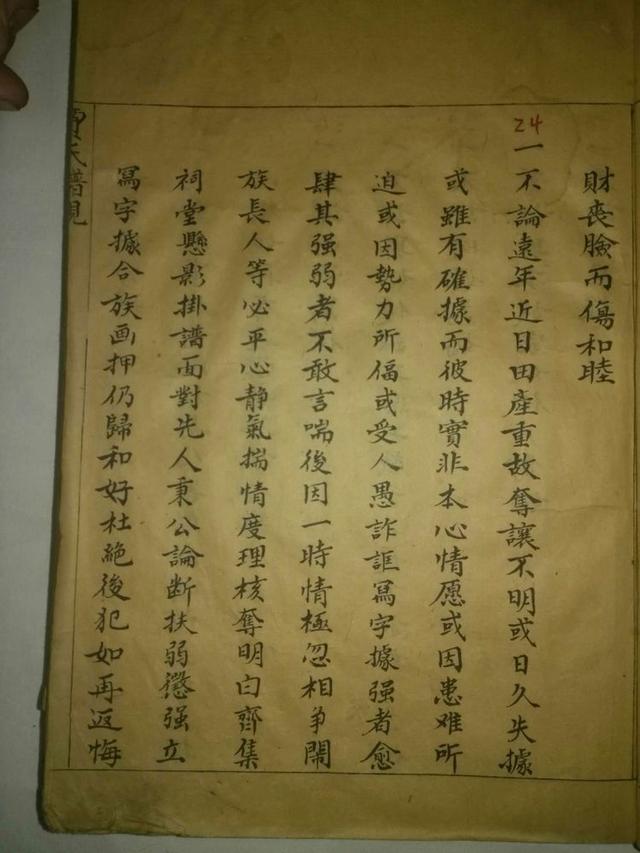 財喪臉而傷和睦
24
一不論遠年近日田產重故奪讓不明或日久失據
或雖有確據而彼時實非本心情愿或因患难所
迫或因勢力所偪或受人愚詐誆冩字據强者愈
肆其强弱者不敢言喘後因一時情極忽相爭鬧
族長人等必平心靜氣揣情度理核奪明白齊集
祠堂懸影掛譜面對先人秉公論断扶弱懲强立
冩字據合族画押仍歸和好杜絕後犯如再返悔
賈氏譜規